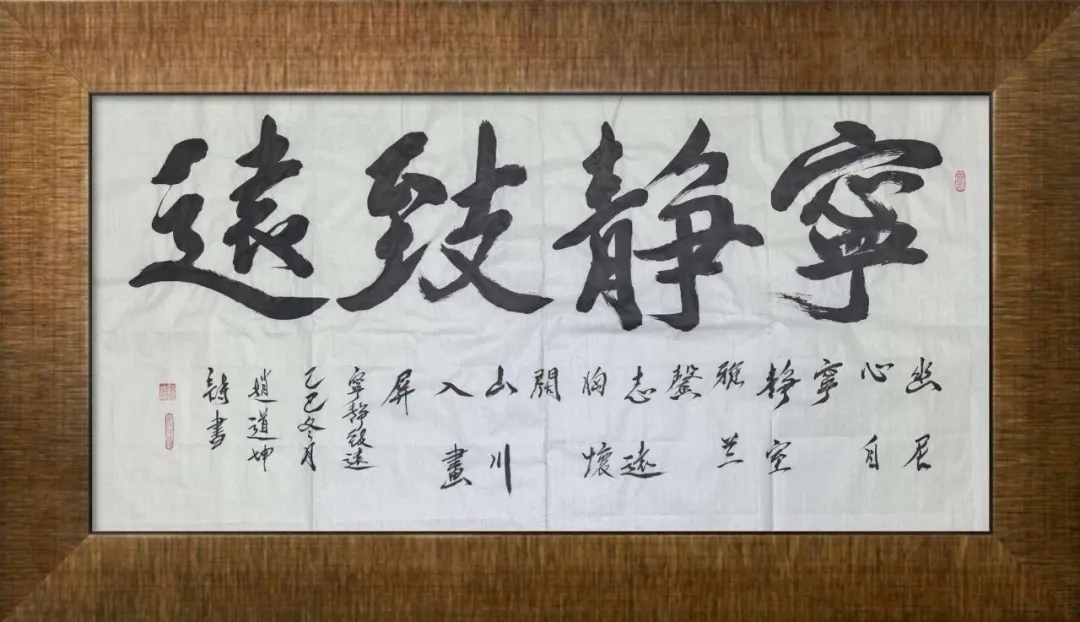 寧靜致遠
幽居
心自
寧
靜室
雅兰
馨
志遠
胸懷
闊
山川
入畫
屏
寧靜致遠
乙巳冬月
趙道坤
詩書